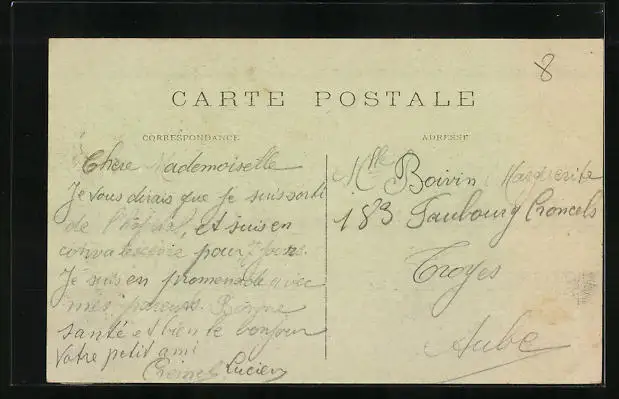 8
CARTE POSTALE
CORRESPONDANCE
ADRESSE
Chere Mademoiselle
Je vous dirais que je suis sorti
de l'hopital, et suis en
convalescence pour 7 jours.
Je suis en promenade avec
mes parents. Bonne
santé et bien le bonjour
Votre petit ami
Lucien
Mlle Boivin Marguerite
183 Faubourg Croncels
Troyes
Aube